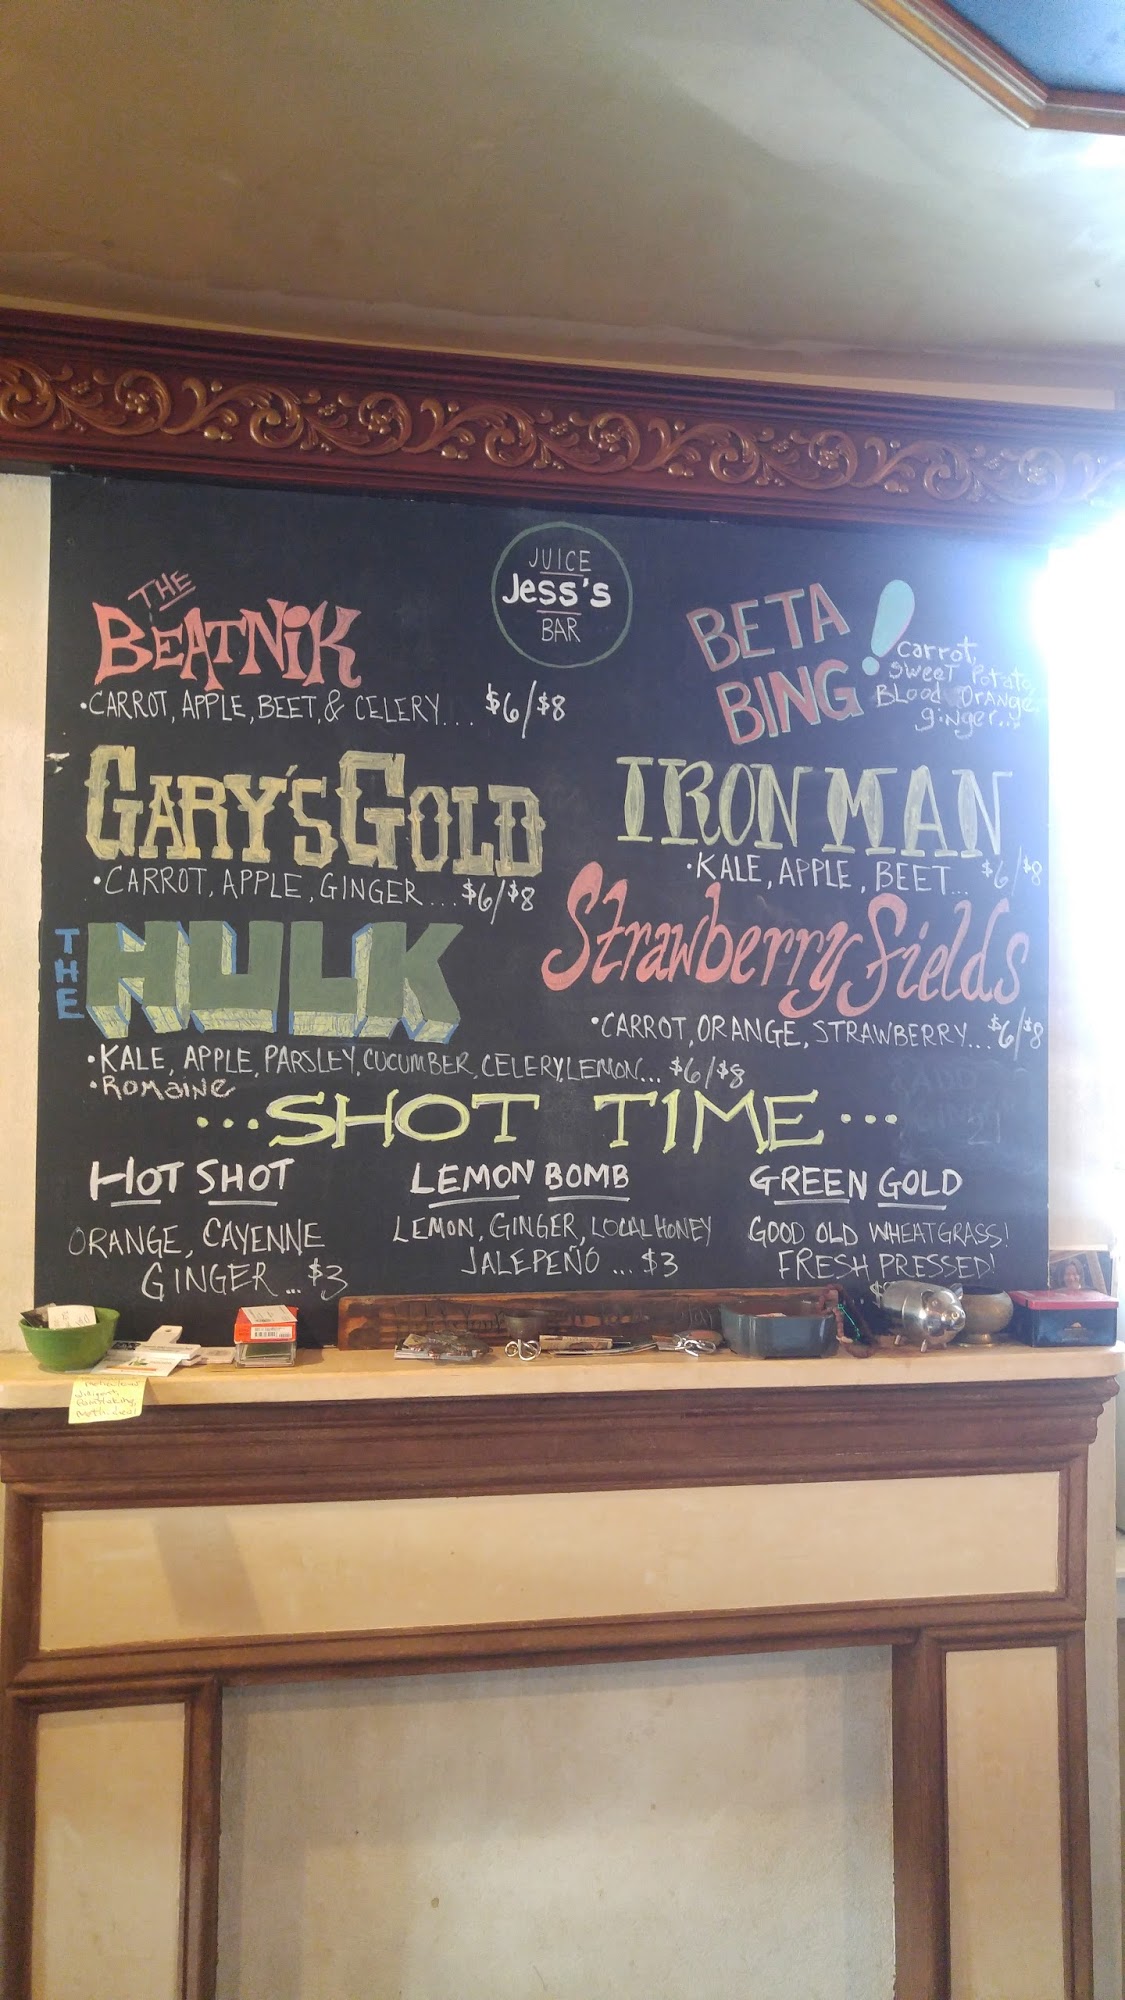 JUICE
Jess's
BAR
THE
BEATNIK
•CARROT, APPLE, BEET, & CELERY... $6/$8
BETA
BING!
Carrot,
Sweet Potato,
Blood Orange,
ginger...
GARY'S GOLD
•CARROT, APPLE, GINGER... $6/$8
IRON MAN
•KALE, APPLE, BEET... $6/$8
THE HULK
•KALE, APPLE, PARSLEY, CUCUMBER, CELERY, LEMON... $6/$8
•ROMAINE
Strawberry Fields
•CARROT, ORANGE, STRAWBERRY... $6/$8
...SHOT TIME...
HOT SHOT
ORANGE, CAYENNE
GINGER... $3
LEMON BOMB
LEMON, GINGER, LOCAL HONEY
JALEPEÑO ... $3
GREEN GOLD
GOOD OLD WHEATGRASS!
FRESH PRESSED!